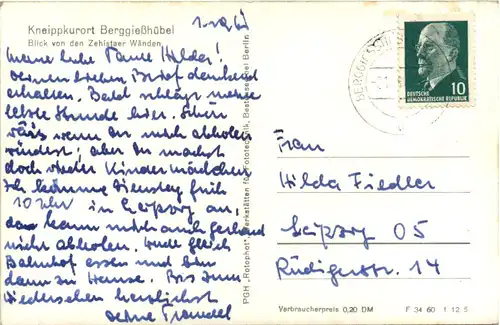 Kneippkurort Berggießhübel
Blick von den Zehistaer Wänden
Meine liebe Tante Hilda!
Deinen lieben Brief dankend
erhalten. Bald schlägt meine
letzte Stunde hier. Schön
wär's wenn Du mich abholen
würdest; aber Du machst
doch wieder Kindermädchen.
Ich komme Dienstag früh
10 Uhr in Leipzig an,
da kann mich auch gerhard
nicht abholen. Werde gleich
Bahnhof essen und bin
dann zu Hause. Bis zum
Wiedersehen herzlichst
Deine Traudel
PGH „Rotophot", Werkstätten für Fototechnik, Bestensee bei Berlin
DEUTSCHE
DEMOKRATISCHE REPUBLIK
10
Frau
Hilda Fiedler
Leipzig O5
Rüdigerstr. 14
Verbraucherpreis 0,20 DM
F 34 60 1 12 5